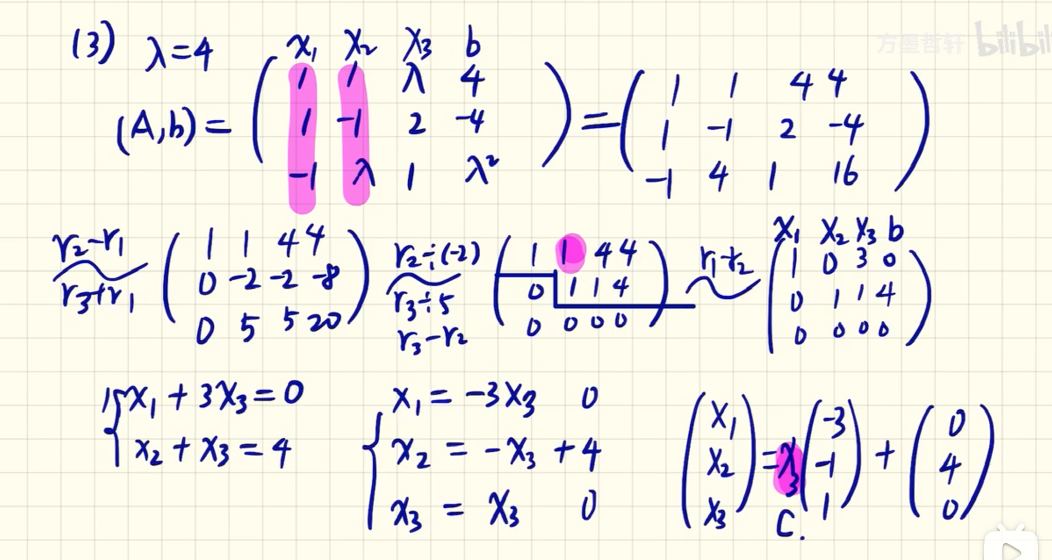 (3) λ=4
x₁ x₂ x₃ b
(A,b) = ( 1 1 λ 4 ) = ( 1 1 4 4 )
( 1 -1 2 -4 ) ( 1 -1 2 -4 )
( -1 λ 1 λ² ) ( -1 4 1 16 )
r₂-r₁
r₃+r₁
( 1 1 4 4 )
( 0 -2 -2 -8 )
( 0 5 5 20 )
r₂÷(-2)
r₃÷5
r₃-r₂
( 1 1 4 4 )
( 0 1 1 4 )
( 0 0 0 0 )
r₁-r₂
x₁ x₂ x₃ b
( 1 0 3 0 )
( 0 1 1 4 )
( 0 0 0 0 )
{ x₁ + 3x₃ = 0
x₂ + x₃ = 4
{ x₁ = -3x₃ 0
x₂ = -x₃ + 4
x₃ = x₃ 0
( x₁ ) = x₃ ( -3 ) + ( 0 )
( x₂ ) ( -1 ) ( 4 )
( x₃ ) ( 1 ) ( 0 )
C.
bilibili